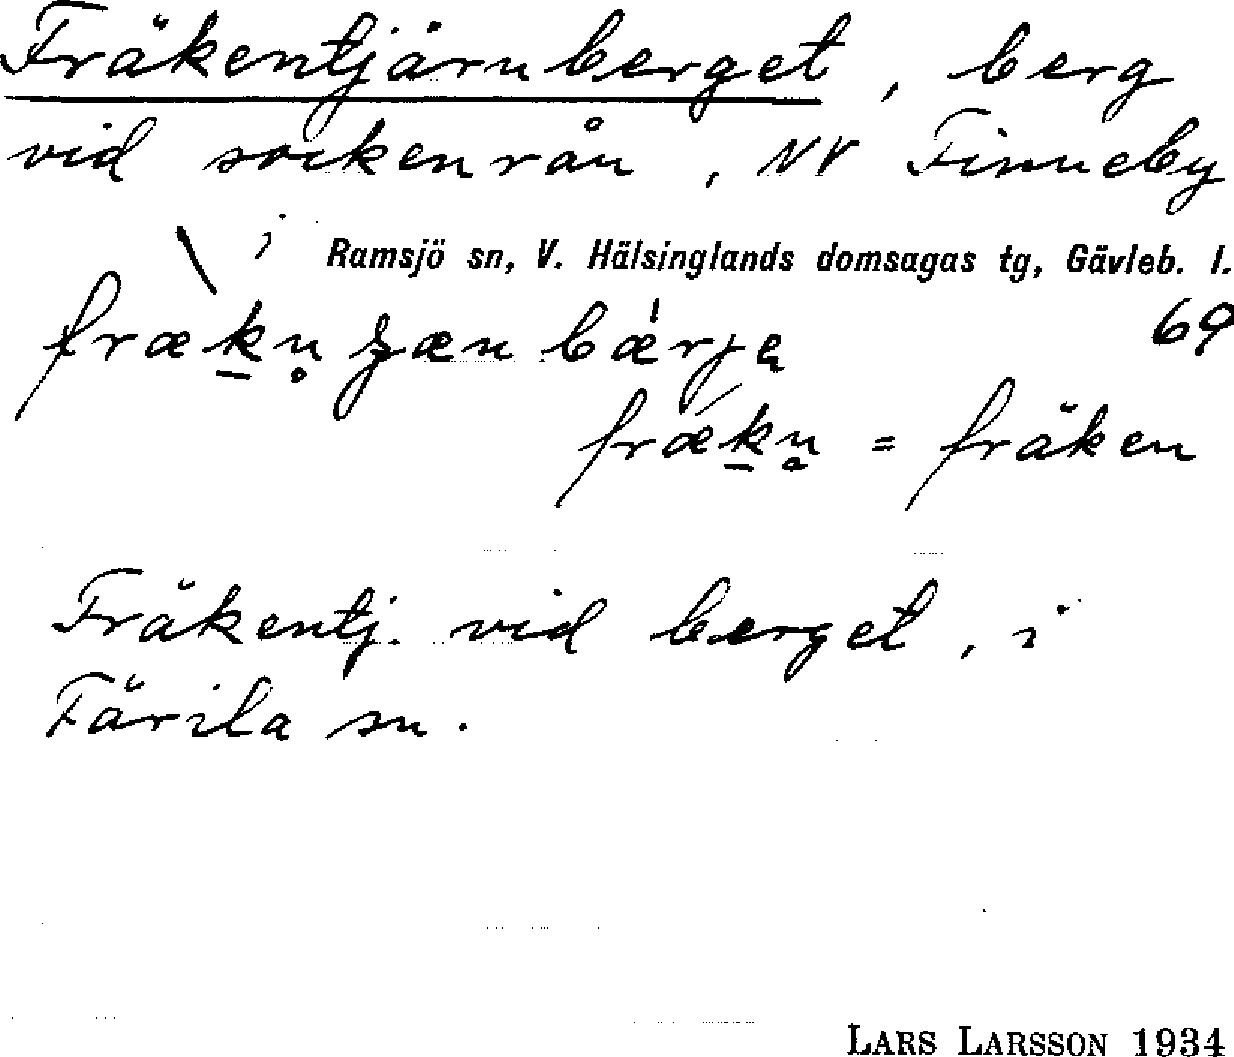 Fräkentjärnberget, berg
vid sockenrån, NV Finneby
i Ramsjö sn, V. Hälsinglands domsagas tg, Gävleb. l.
69
= fräken
Fräkentj. vid berget, i
Färila sn.
LARS LARSSON 1934